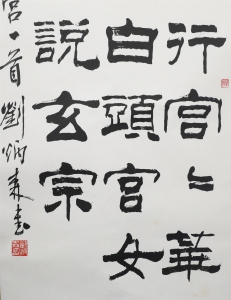 行宮〻華
白頭宮女
說玄宗
宮一首劉炳森書